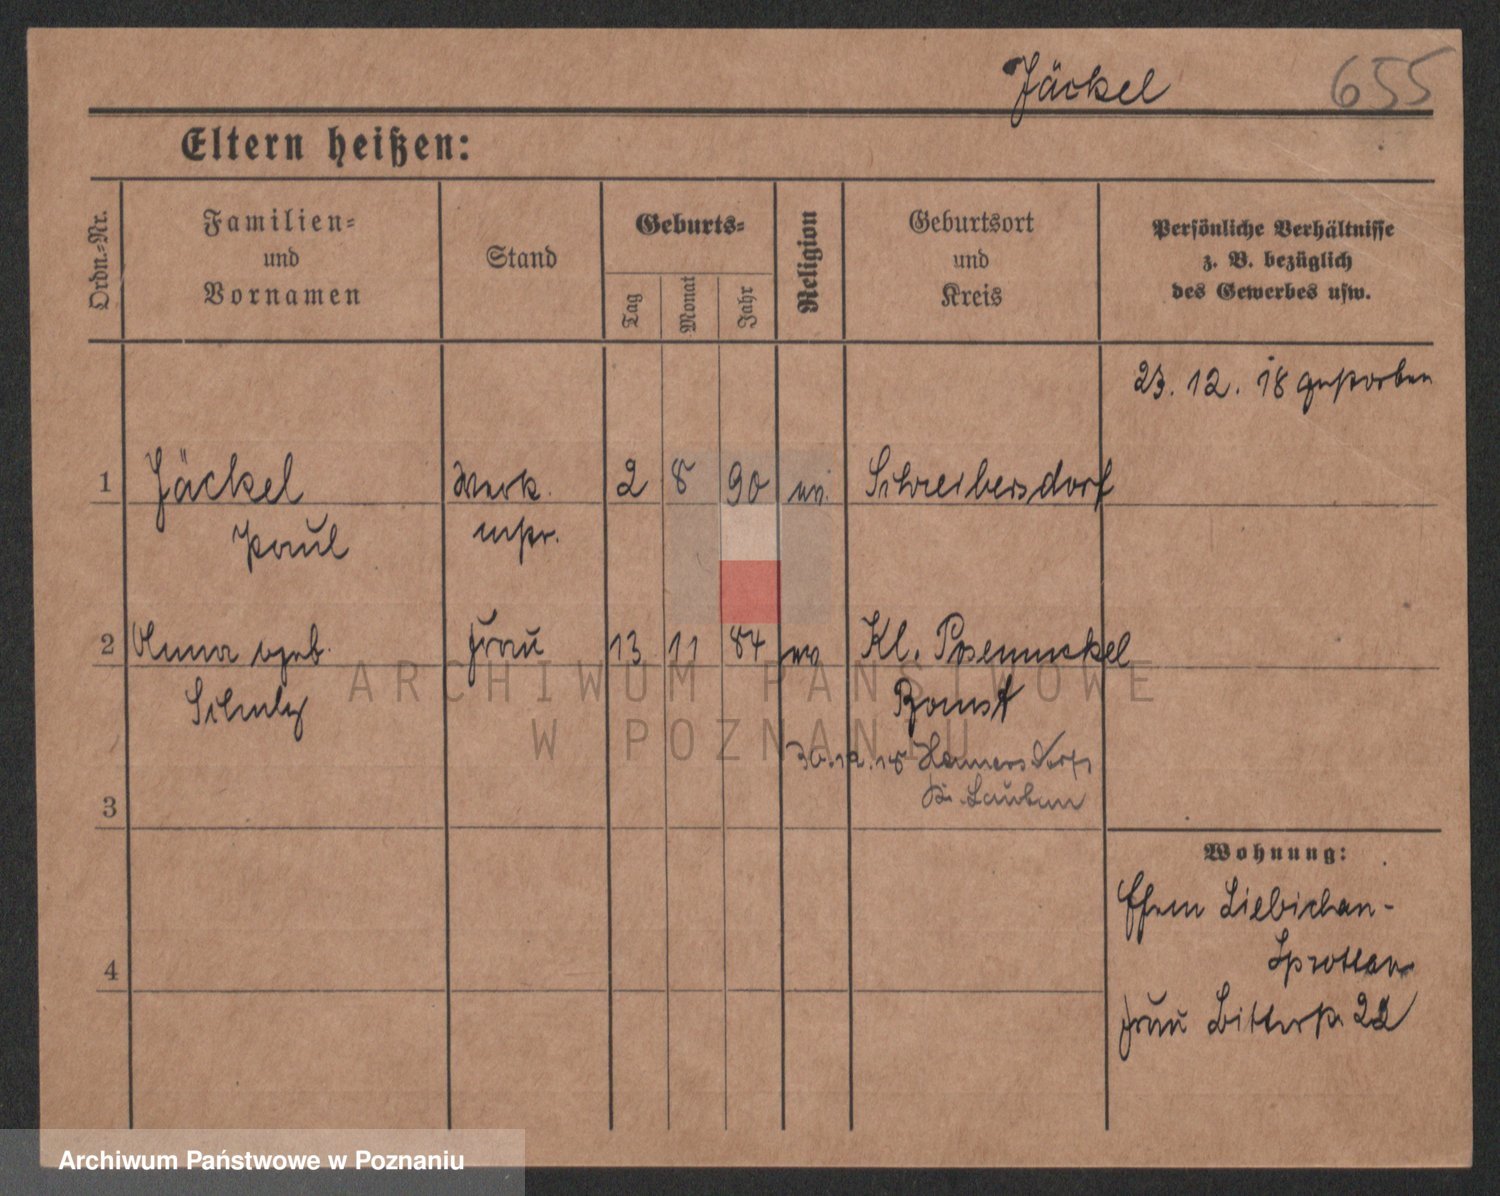 Jäckel 655
Eltern heißen:
Ordn.=Nr.
Familien=
und
Vornamen
Stand
Geburts=
Tag
Monat
Jahr
Religion
Geburtsort
und
Kreis
Persönliche Verhältnisse
z. B. bezüglich
des Gewerbes usw.
23. 12. 18 gestorben
1 Jäckel Werk. 2 8 90 ev. Schreibersdorf
Paul mstr.
2 Anna geb. Frau 13 11 84 ev. Kl. Posemuckel
Schulz Bomst
30.12.18 Hennersdorf
Kr. Lauban
3
4
Wohnung:
Liebichau-
Sprottau
Frau Bitterstr. 22
ARCHIWUM PAŃSTWOWE
W POZNANIU
Archiwum Państwowe w Poznaniu